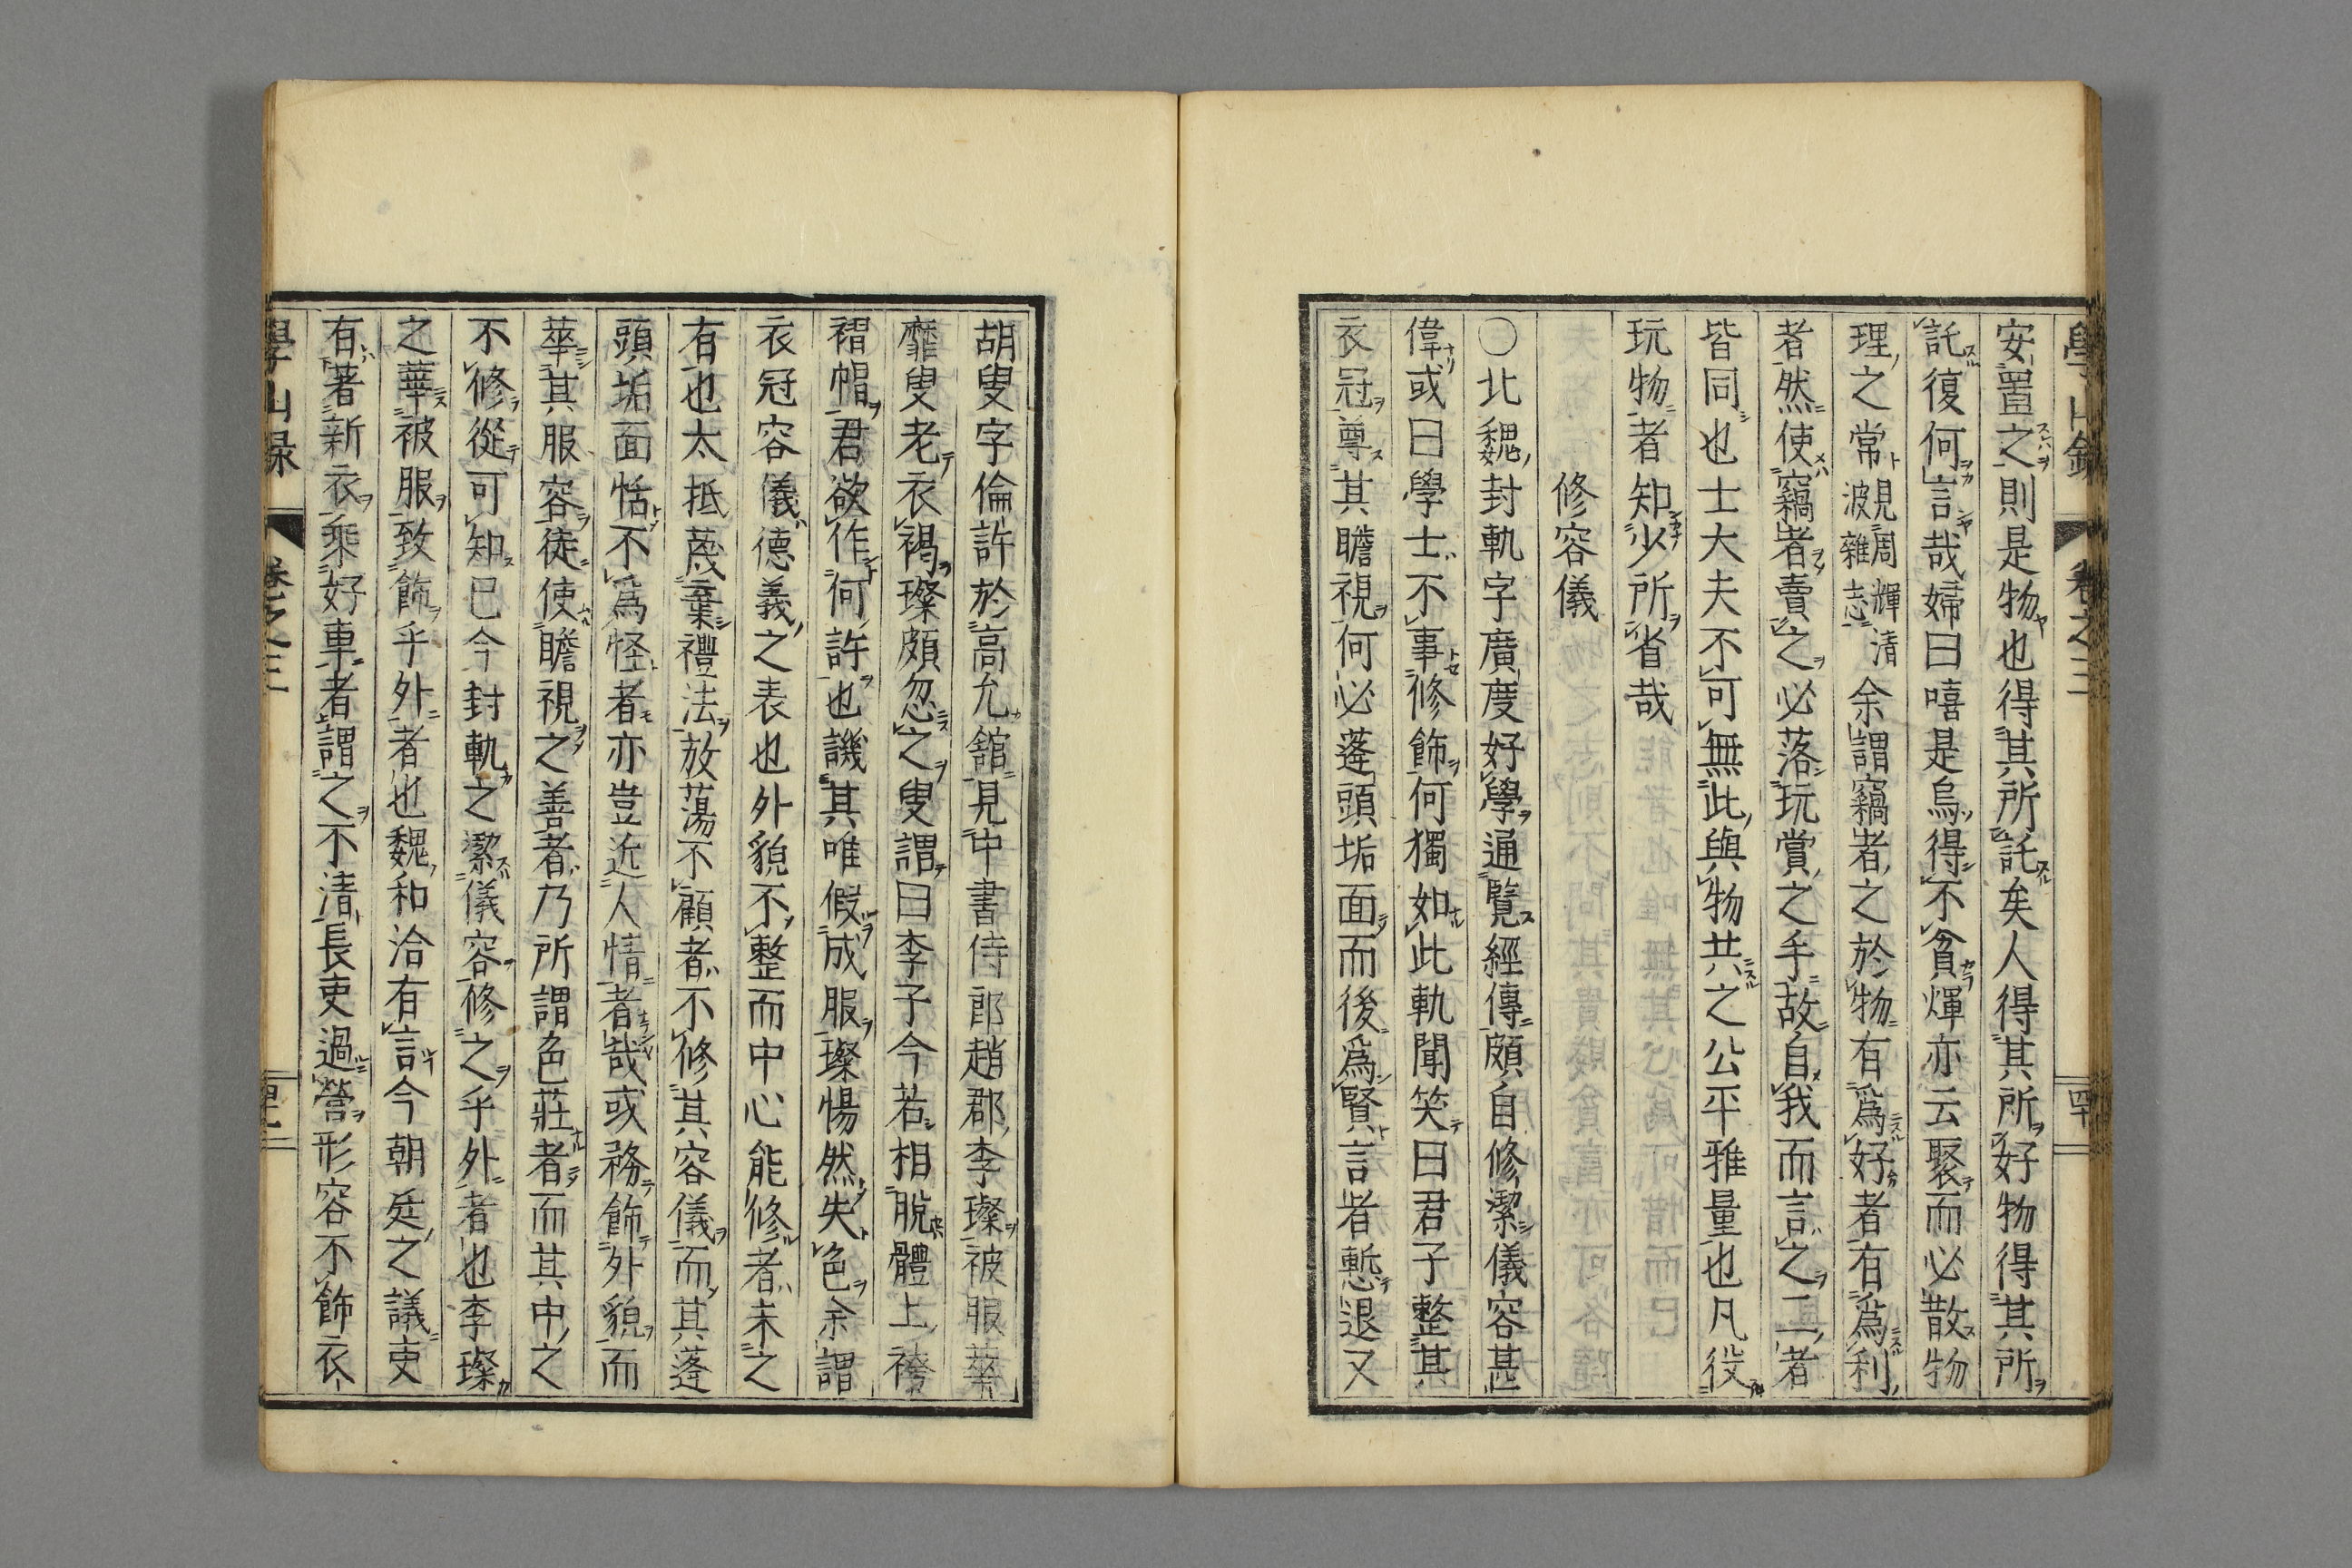 安置之則是物也得其所託矣人得其所好物得其所
託復何言哉婦曰嘻是烏得不貧煇亦云聚而必散物
理之常見周煇清波雜志余謂竊者之於物有爲好者有爲利
者然使竊者賣之必落玩賞之手故自我而言之二者
皆同也士大夫不可無此與物共之公平雅量也凡役
玩物者知少所省哉
修容儀
〇北魏封軌字廣度好學通覽經傳頗自修潔儀容甚
偉或曰學士不事修飾何獨如此軌聞笑曰君子整其
衣冠尊其瞻視何必蓬頭垢面而後爲賢言者慙退又
胡叟字倫許於高允舘見中書侍郎趙郡李璨被服華
靡叟老衣褐璨頗忽之叟謂曰李子今若相脫體上袴
褶帽君欲作何許也譏其唯假成服璨惕然失色余謂
衣冠容儀德義之表也外貌不整而中心能修者未之
有也太抵蔑棄禮法放蕩不顧者不修其容儀而其蓬
頭垢面恬不爲怪者亦豈近人情者哉或務飾外貌而
華其服容徒使瞻視之善者乃所謂色莊者而其中之
不修從可知已今封軌之潔儀容修之乎外者也李璨
之華被服致飾乎外者也魏和洽有言今朝廷之議吏
有著新衣乘好車者謂之不清長吏過營形容不飾衣